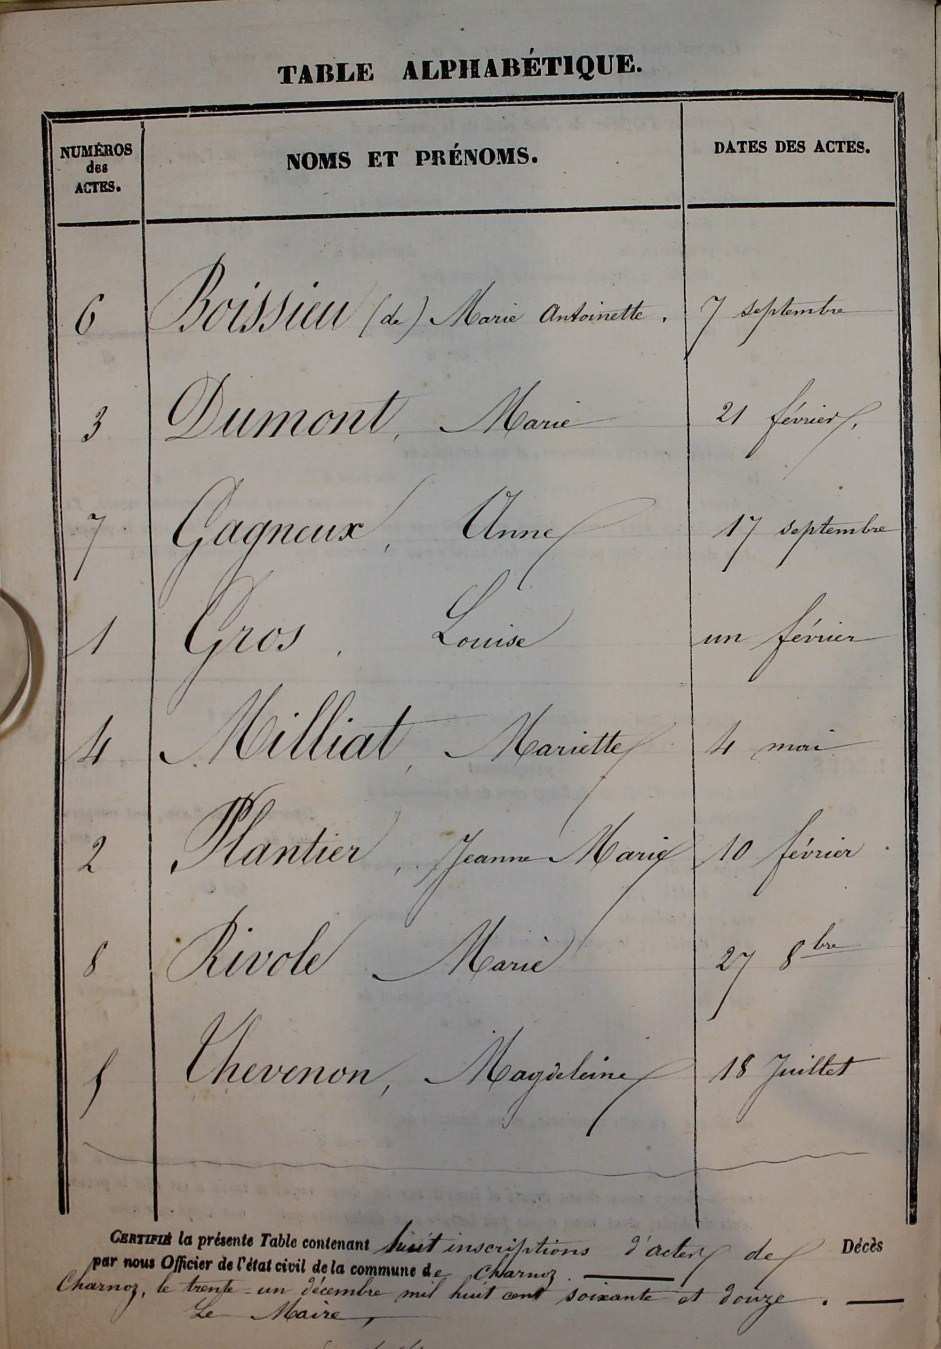 TABLE ALPHABÉTIQUE.
NUMÉROS des ACTES. NOMS ET PRÉNOMS. DATES DES ACTES.
6 Boissieu (de) Marie Antoinette. 7 septembre
3 Dumont, Marie 21 février.
7 Gagneux, Anne 17 septembre
1 Gros, Louise un février
4 Milliat, Mariette 4 mai
2 Plantier, Jeanne Marie 10 février
8 Rivole Marie 27 8bre
5 Thevenon, Magdeleine 18 Juillet
CERTIFIÉ la présente Table contenant huit inscriptions d'actes de Décès
par nous Officier de l'état civil de la commune de Charnoz.
Charnoz, le trente-un décembre mil huit cent soixante et douze.
Le Maire,